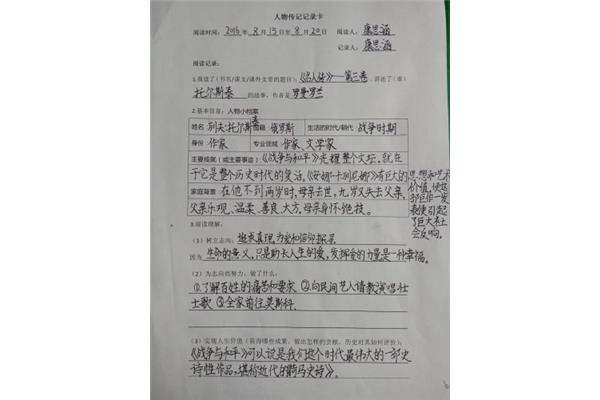 人物传记记录卡
阅读时间：2016年8月15日至8月20日 阅读人：康思涵
记录人：康思涵
阅读记录：
1.我读了（书名/课文/课外文章的题目）：《名人传》——第三卷，讲述了（谁）
托尔斯泰的故事，作者是罗曼罗兰
2.基本信息：人物小档案
姓名 列夫·托尔斯泰 国籍 俄罗斯 生活的时代/朝代 战争时期
身份 作家 专业领域 作家、文学家
主要成就（或主要事迹）《战争与和平》光耀整个文坛，就在
于它是整个历史时代的复活。《安娜·卡列尼娜》有巨大的思想和艺术
价值，使这部巨作一发表便引起了巨大社会反响。
家庭背景 在他不到两岁时，母亲去世，九岁又失去父亲，
父亲乐观、温柔、善良、大方，母亲身怀绝技。
3.阅读理解：
（1）树立志向：追求真理，为爱和信仰探寻
因为生命的意义，只是助长人生的爱，发挥爱的力量是一种幸福。
（2）为志向而努力，做了什么：
①了解百姓的痛苦和要求 ②向民间艺人请教演唱壮
士歌 ③全家前往莫斯科
（3）实现人生价值（获得哪些成果，做出怎样的贡献，历史对其如何评价）：
《战争与和平》可以说是我们这个时代最伟大的一部史
诗性作品，堪称近代的《荷马史诗》。